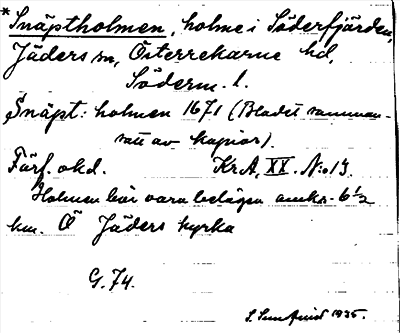 * Snäptholmen, holme i Söderfjärden,
Jäders sn, Österrekarne hd,
Söderm. l.
Snäpt: holmen 1671 (Bladet samman-
satt av kopior).
Förf. okd. KrA, XX. N:o 13.
Holmen bör vara belägen omkr. 6 1/2
km. Ö Jäders kyrka
G. 74.
1935.